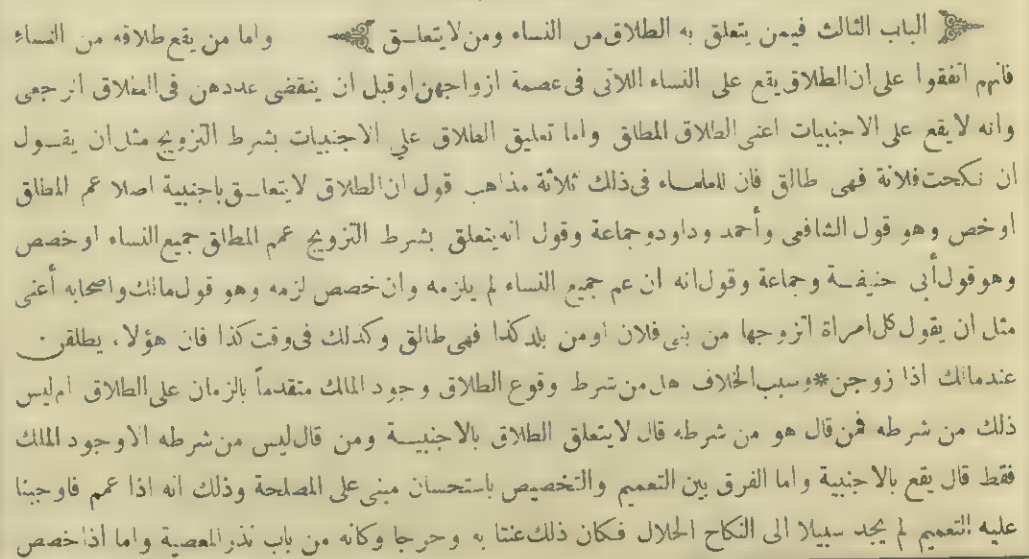 الباب الثالث فيمن يتعلق به الطلاق من النساء ومن لا يتعلـق واما من يقع طلاقه من النساء
فانهم اتفقوا على ان الطلاق يقع على النساء اللاتى فى عصمة ازواجهن او قبل ان ينقضى عددهن فى الطلاق الرجعى
وانه لا يقع على الاجنبيات اعنى الطلاق المطلق واما تعليق الطلاق على الاجنبيات بشرط التزويج مثل ان يقـول
ان نكحت فلانة فهى طالق فان للعلمـاء فى ذلك ثلاثة مذاهب قول ان الطلاق لا يتعلـق باجنبية اصلا عمم المطلق
او خص وهو قول الشافعى وأحمد وداود وجماعة وقول انه يتعلق بشرط التزويج عمم المطلق جميع النساء او خصص
وهو قول أبى حنيفـة وجماعة وقول انه ان عم جميع النساء لم يلزمه وان خصص لزمه وهو قول مالك واصحابه أعنى
مثل ان يقول كل امراة اتزوجها من بنى فلان او من بلد كذا فهى طالق وكذلك فى وقت كذا فان هؤلاء يطلقن
عند مالك اذا زوجن * وسبب الخلاف هل من شرط وقوع الطلاق وجود الملك متقدماً بالزمان على الطلاق ام ليس
ذلك من شرطه فمن قال هو من شرطه قال لا يتعلق الطلاق بالاجنبيـة ومن قال ليس من شرطه الا وجود الملك
فقط قال يقع بالاجنبية واما الفرق بين التعميم والتخصيص باستحسان مبنى على المصلحة وذلك انه اذا عمم فاوجبنا
عليه التعميم لم يجد سبيلا الى النكاح الحلال فكان ذلك عنتا به وحرجا وكانه من باب نذر المعصية واما اذا خصص